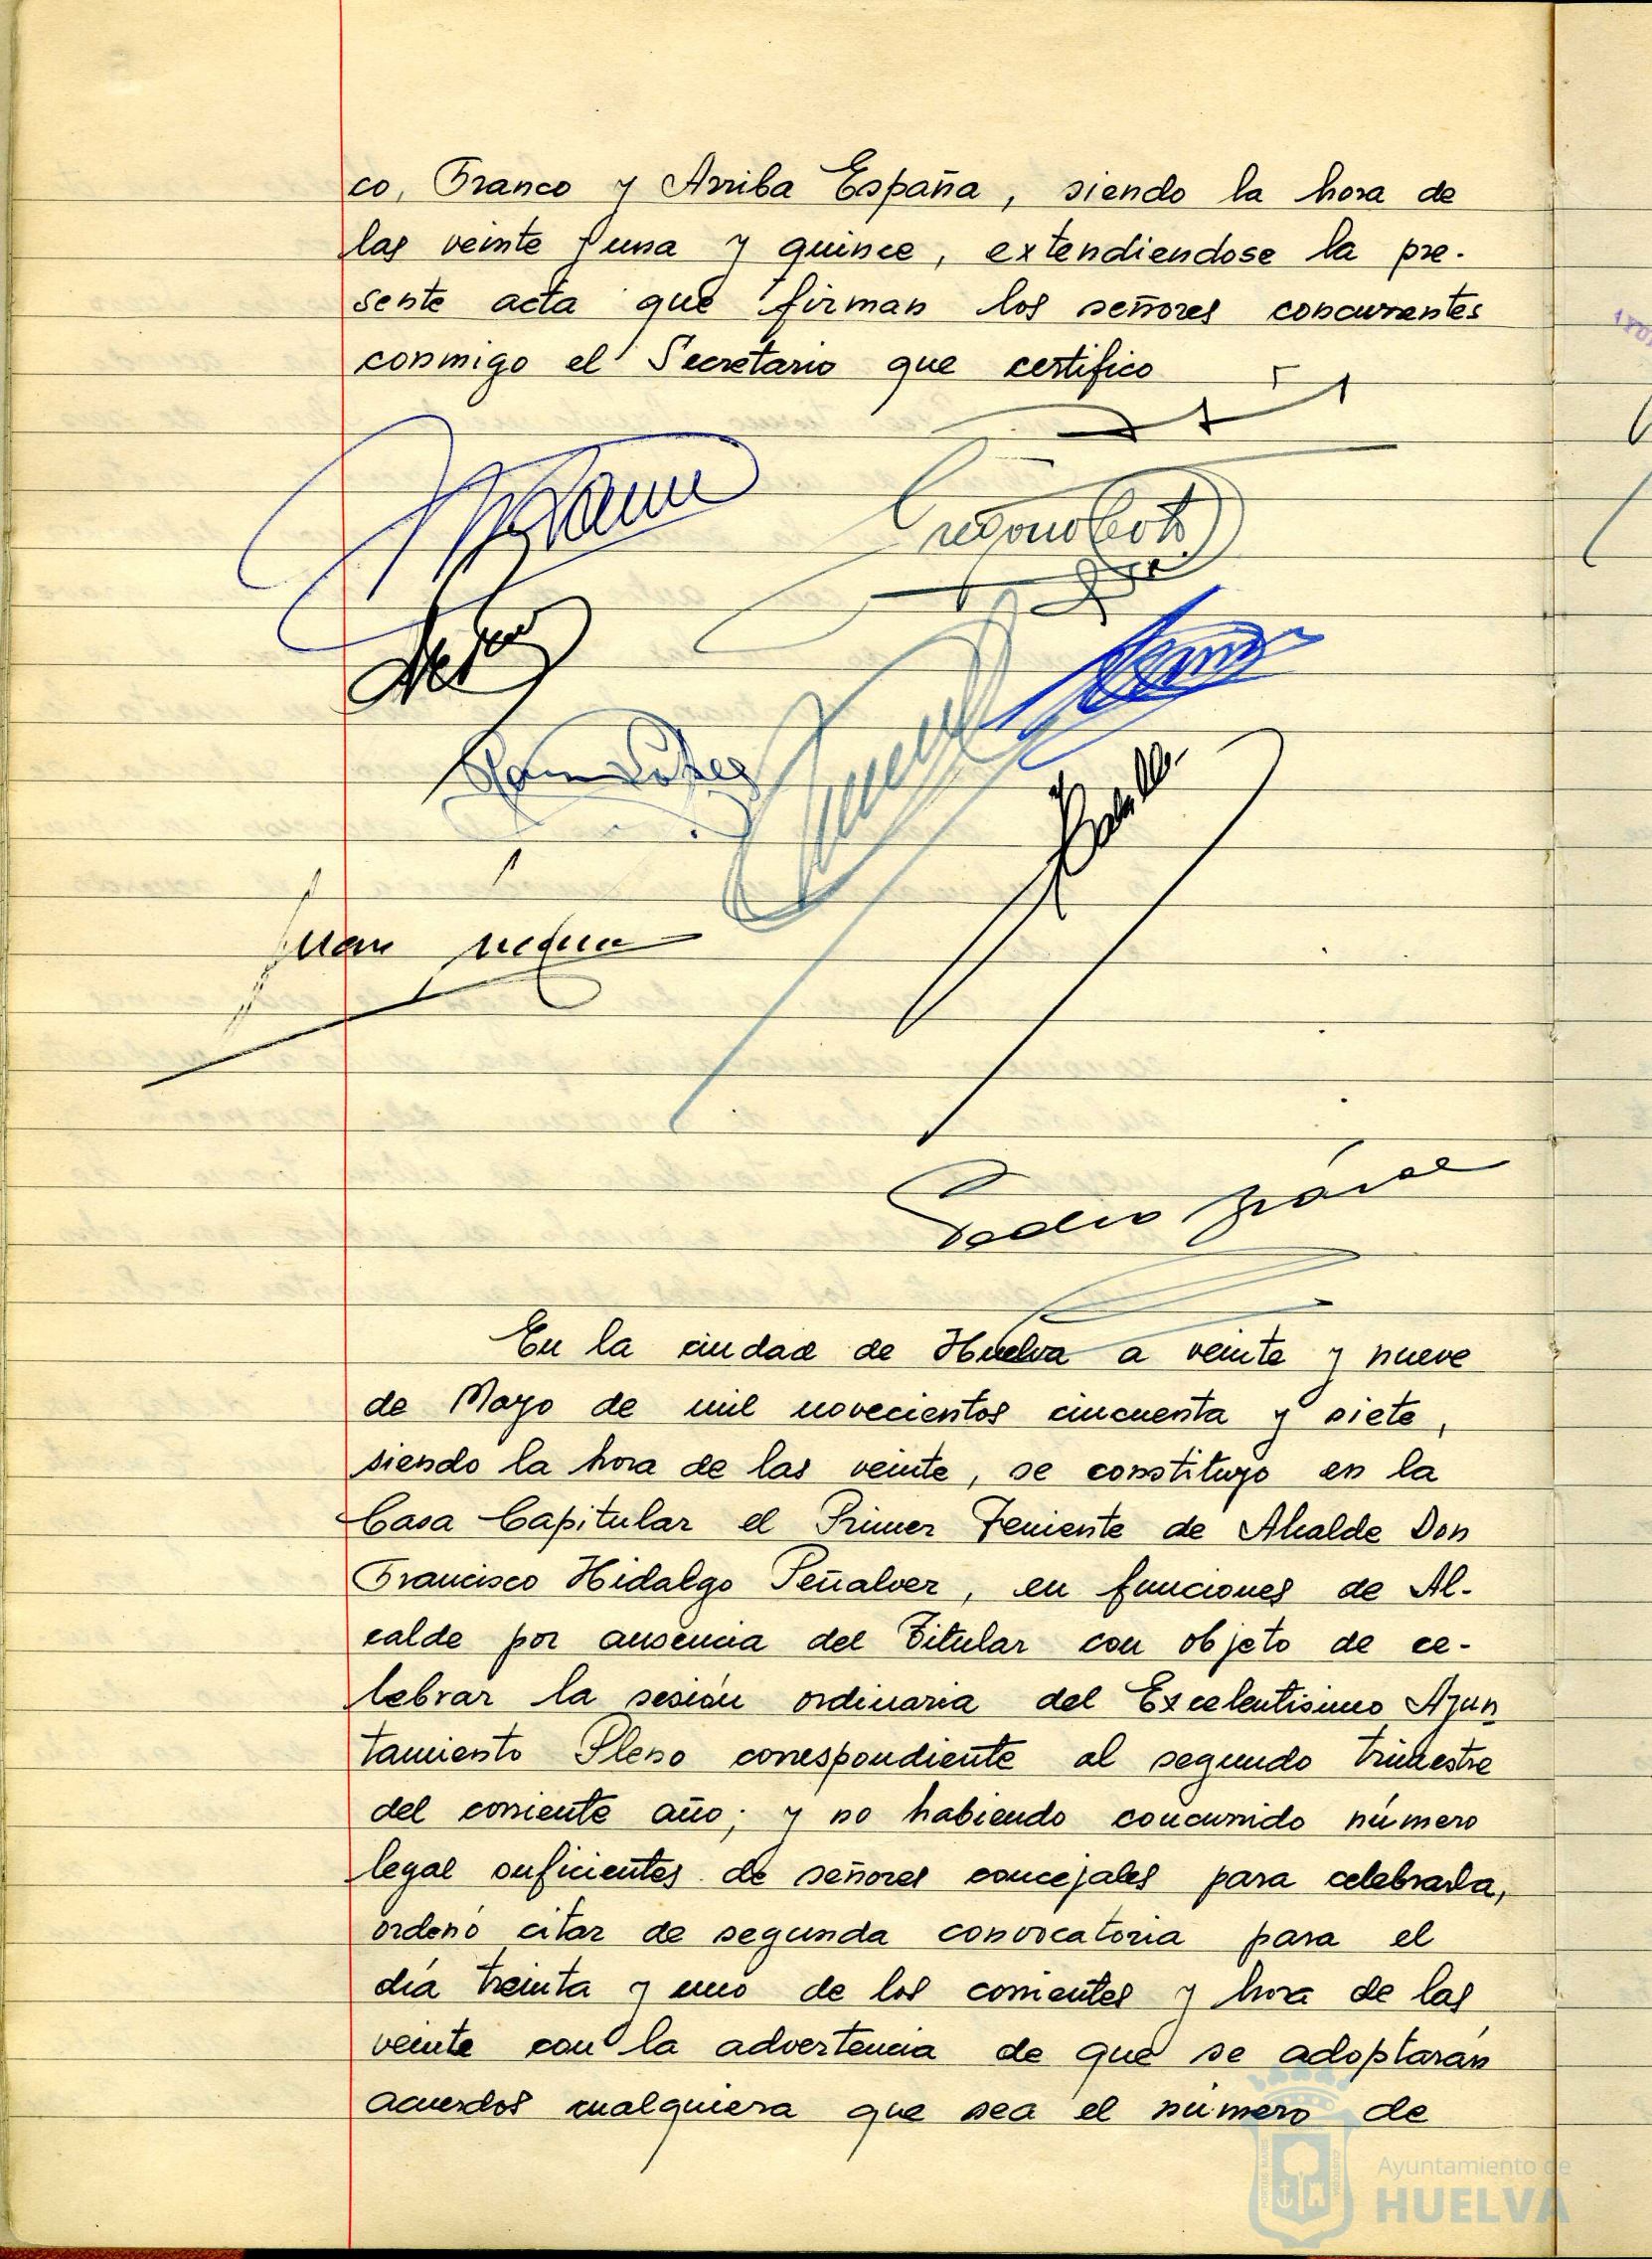 co, Franco y Arriba España, siendo la hora de
las veinte y una y quince, extendiendose la pre-
sente acta que firman los señores concurrentes
conmigo el Secretario que certifico
Gregorio
Ramon Lopez
Juan
Pedro
En la ciudad de Huelva a veinte y nueve
de Mayo de mil novecientos cincuenta y siete,
siendo la hora de las veinte, se constituyo en la
Casa Capitular el Primer Teniente de Alcalde Don
Francisco Hidalgo Peñalver, en funciones de Al-
calde por ausencia del Titular con objeto de ce-
lebrar la sesión ordinaria del Excelentisimo Ayun
tamiento Pleno correspondiente al segundo trimestre
del corriente año; y no habiendo concurrido número
legal suficientes de señores concejales para celebrarla,
ordenó citar de segunda convocatoria para el
día treinta y uno de los corrientes y hora de las
veinte con la advertencia de que se adoptarán
acuerdos cualquiera que sea el número de
Ayuntamiento de
HUELVA